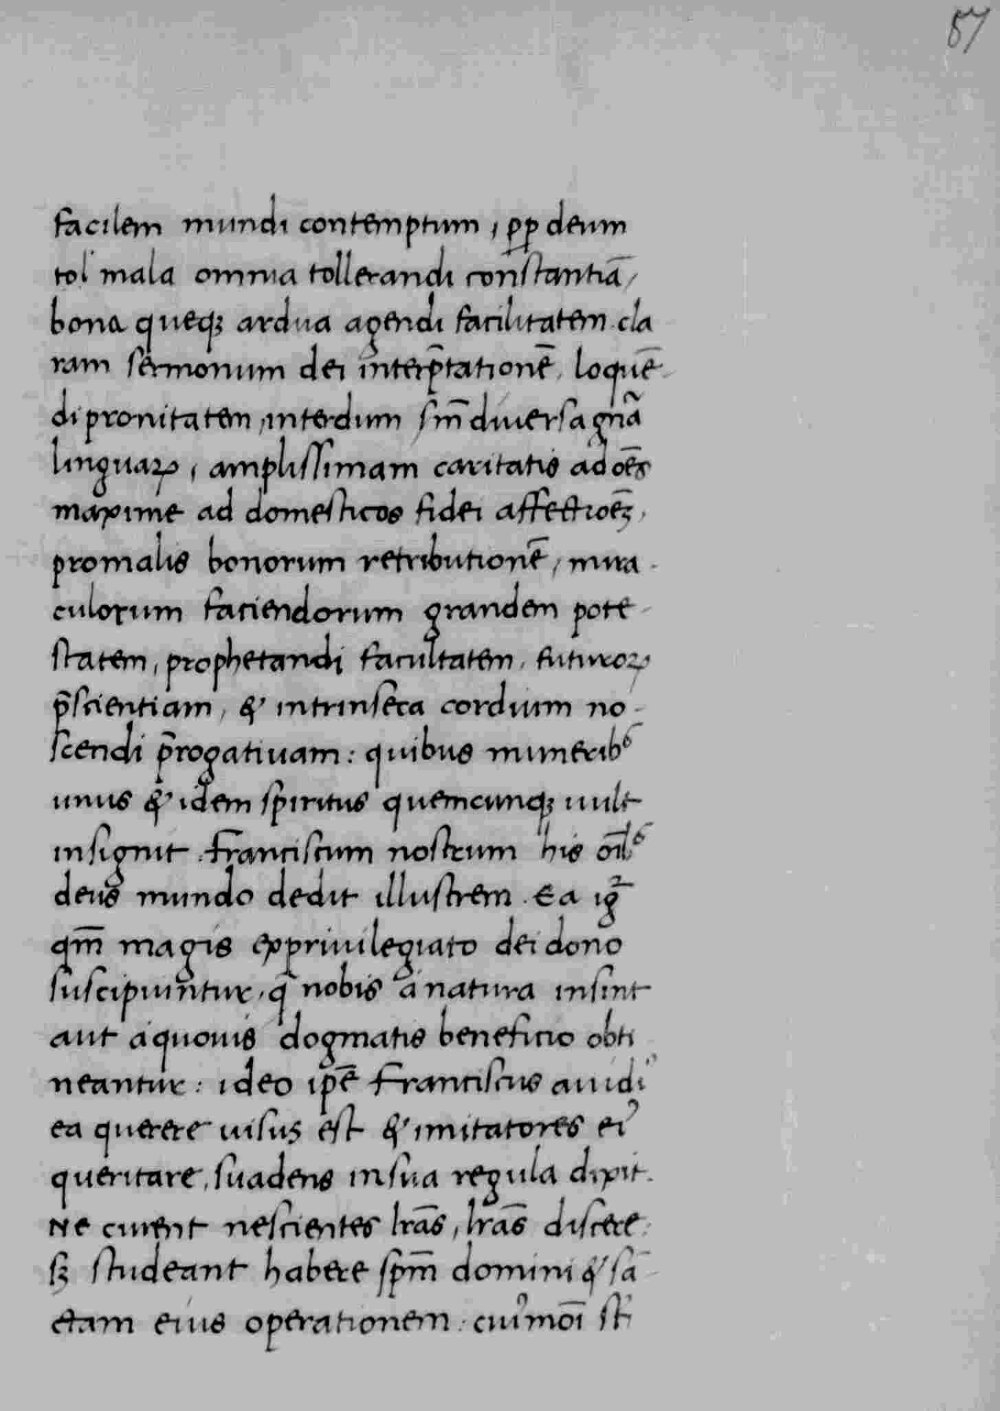 57
facilem mundi contemptum, ꝓp deum
tol mala omnia tollerandi constantiā,
bona queqꝫ ardua agendi facilitatem. cla
ram sermonum dei interp̄tationē, loquē-
di pronitatem, interdum sm̄ diuersa gn̄a
linguaꝝ, amplissimam caritatis ad oēs
maxime ad domesticos fidei affectioēꝫ,
pro malis bonorum retributionē, mira-
culorum faciendorum grandem pote-
statem, prophetandi facultatem, futuroꝝ
p̄scientiam, & intrinseca cordium no-
scendi p̄rogatiuam: quibus munerib⁹
unus & idem spiritus quemcunqꝫ uult
insignit. Franciscum nostrum his oīb⁹
deus mundo dedit illustrem. Ea igr̄
qm̄ magis ex priuilegiato dei dono
suscipiuntur, q̄ nobis a natura insint
aut a quouis dogmatis beneficio obti
neantur: ideo ip̄e Franciscus auidi⁹
ea querere uisus est & imitatores ei⁹
queritare, suadens in sua regula dixit.
Ne curent nescientes lr̄as, lr̄as discere:
sꝫ studeant habere spm̄ domini & sā-
ctam eius operationem: cui⁹moī st̄